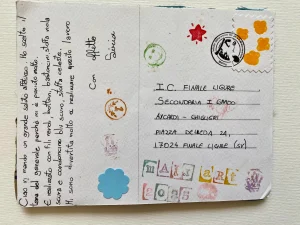 Ciao ti mando un grande saluto affettuoso. Ho scelto il
tema del generale perché mi è piaciuto molto.
È realizzato con fili verdi, bastoncini, stoffa viola
scura e cartoncino blu scuro, stoffa celeste.
Mi sono divertita molto a realizzare questo lavoro
Con affetto
I.C. FINALE LIGURE
SECONDARIA I GRADO
AYCARDI - GHIGLIERI
PIAZZA DELEDDA 2A,
17024 FINALE LIGURE (SV)
MAIL ART